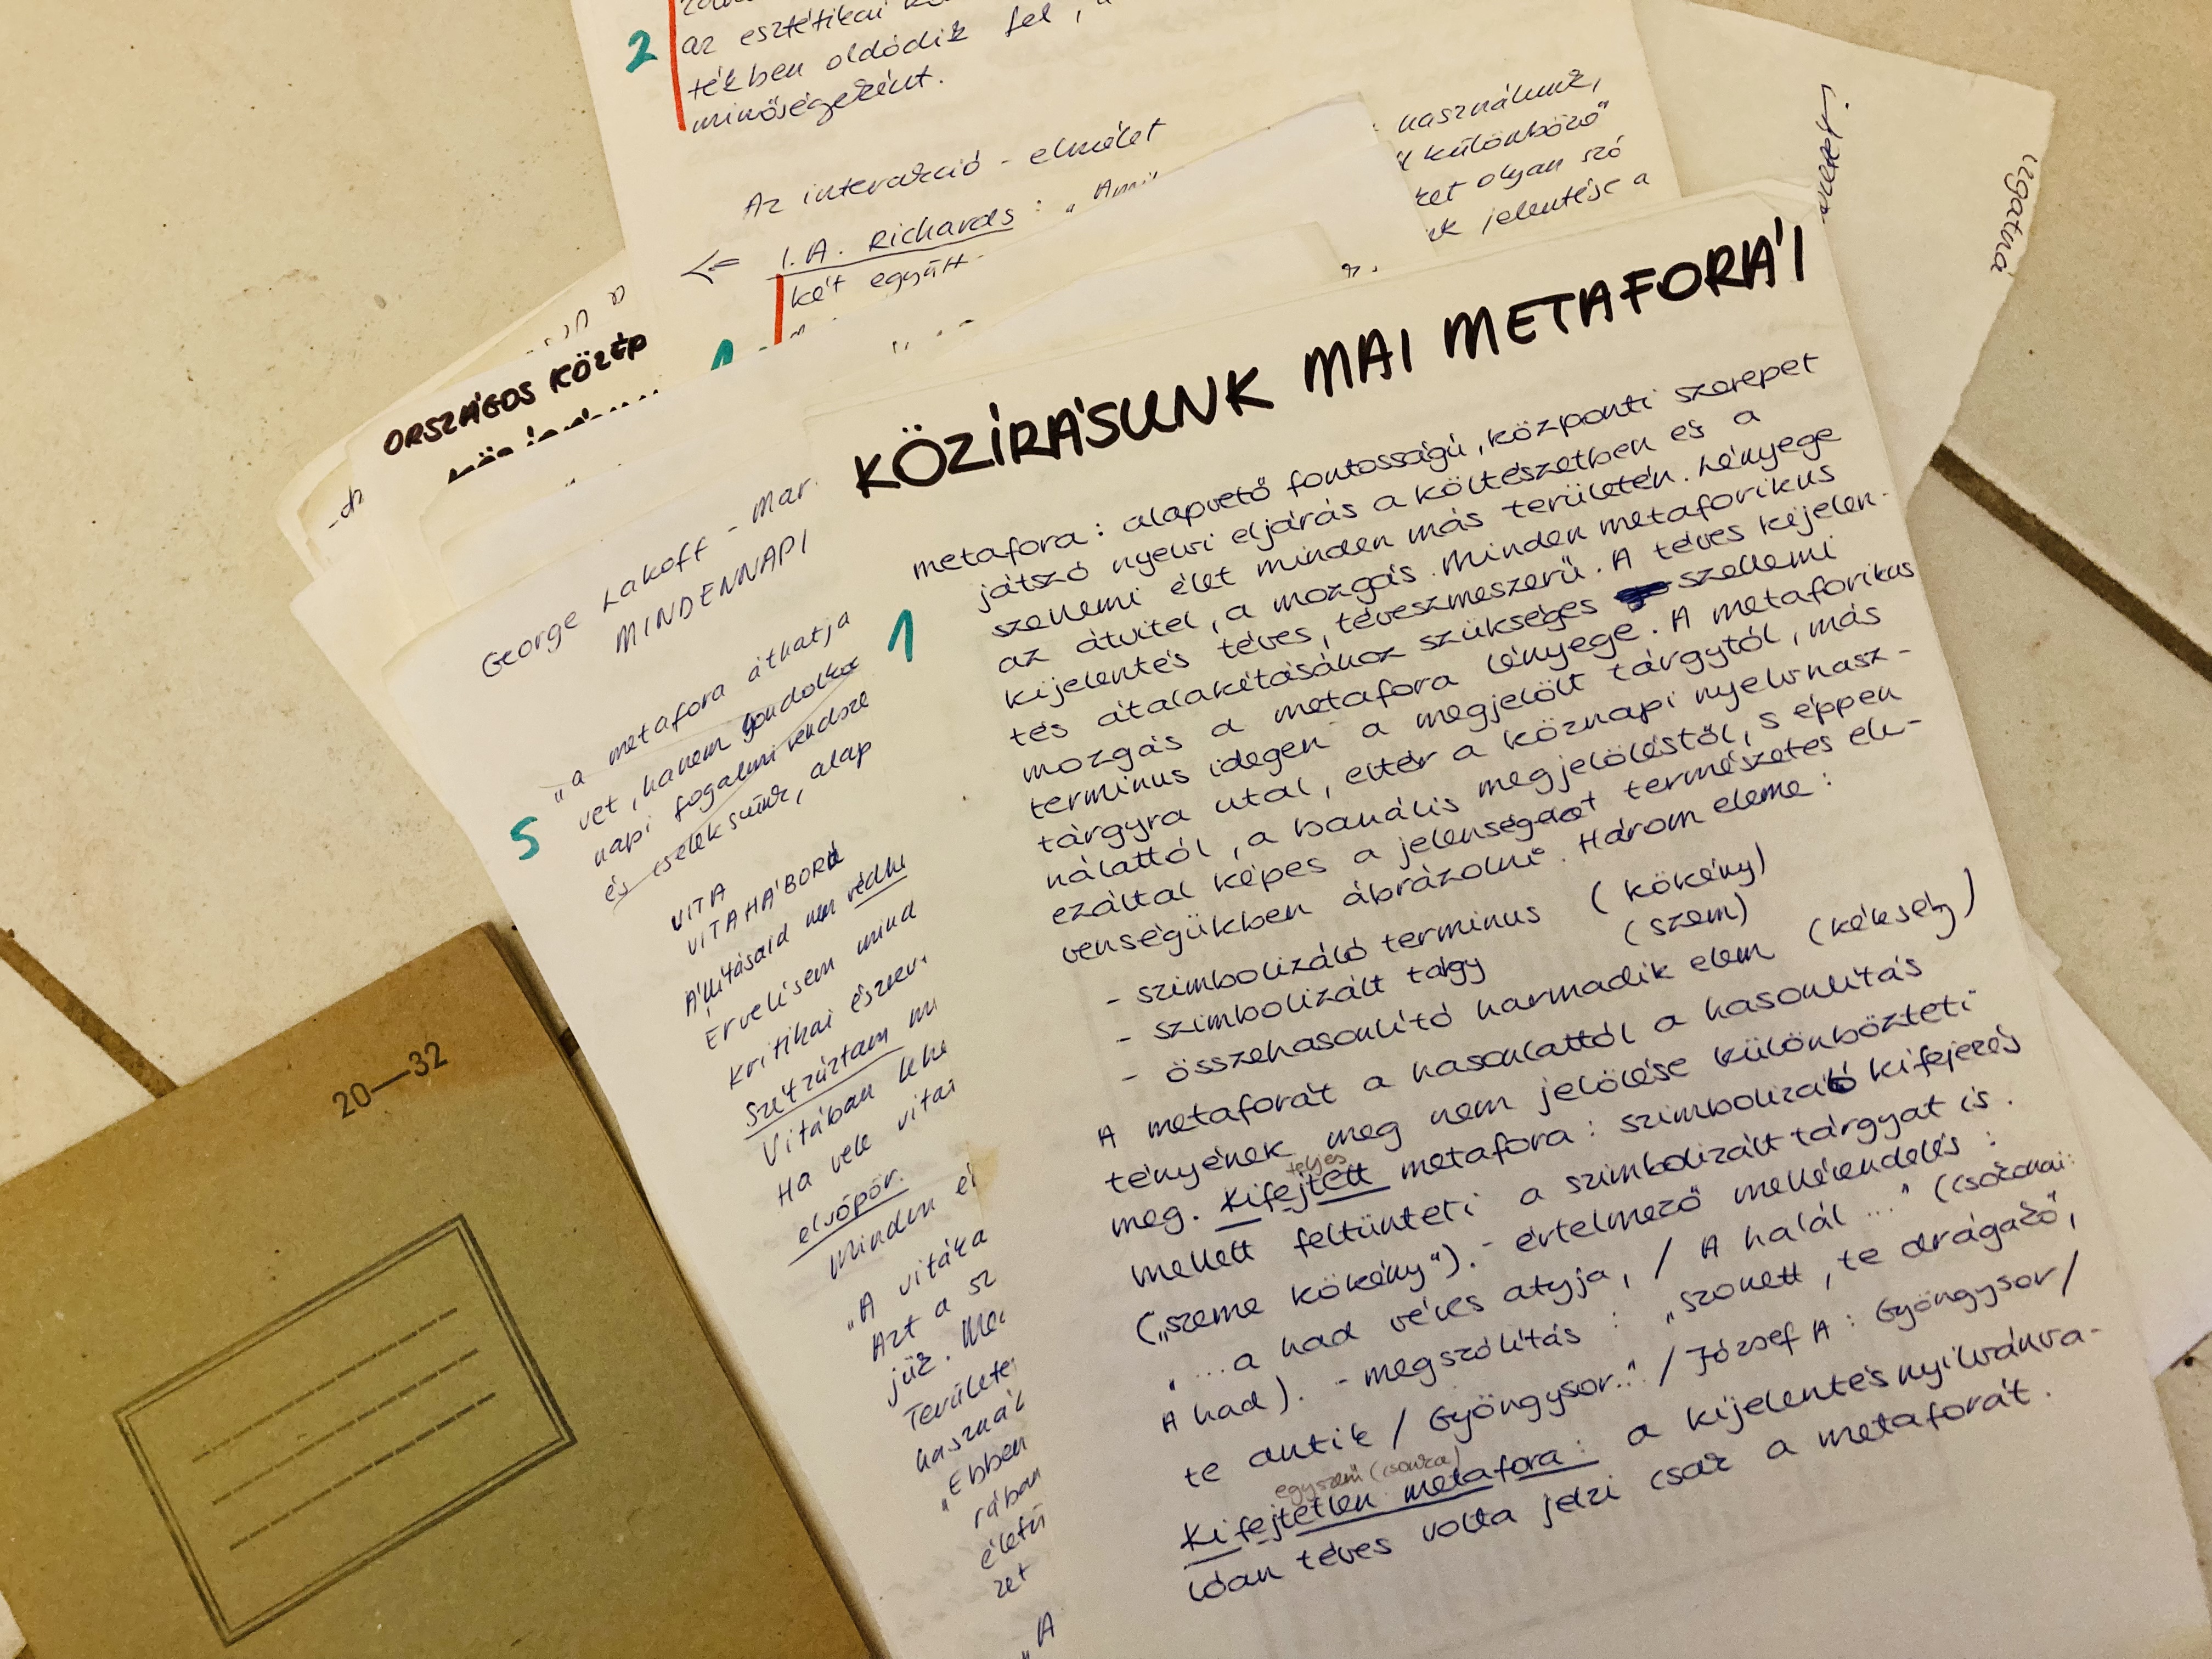 2
az esztétikai
tékben oldódik fel,
minőségeként.
Az interakció - elmélet
I. A. Richards: „
két együtt
használunk,
különböző"
olyan szó
jelentése a
ORSZÁGOS KÖZÉP
1
George Lakoff - Mar
MINDENNAPI
5
„a metafora áthatja
vet, hanem gondolko
napi fogalmi rendsze
és cselekszünk, alap
VITA
VITA HÁBORÚ
Állításaid nem védhe
Érvelésem mind
Kritikai észrev
Szétzúztam
Vitában lehe
Ha vele vitai
elsöpör.
Minden
„A vitáka
Azt a sz
jük.
Területe
használ
„Ebben
rában
életű
zet
„A
KÖZÍRÁSUNK MAI METAFORÁI
1
metafora: alapvető fontosságú, központi szerepet
játszó nyelvi eljárás a költészetben és a
szellemi élet minden más területén. Lényege
az átvitel, a mozgás. Minden metaforikus
kijelentés téves, téveszmeszerű. A téves kijelen-
tés átalakításához szükséges szellemi
mozgás a metafora lényege. A metaforikus
terminus idegen a megjelölt tárgytól, más
tárgyra utal, eltér a köznapi nyelvhasz-
nálattól, a banális megjelöléstől, s éppen
ezáltal képes a jelenségeket természetes ele-
venségükben ábrázolni. Három eleme:
- szimbolizáló terminus (kökény)
- szimbolizált tágy (szem)
- összehasonlító harmadik elem (kékség)
A metaforát a hasonlattól a hasonlítás
tényének meg nem jelölése különbözteti
teljes
meg. Kifejtett metafora: szimbolizáló kifejezés
mellett feltünteti a szimbolizált tárgyat is.
(„szeme kökény"). - értelmező mellérendelés:
„...a had véres atyja, / A halál ..." (Csokonai:
A had). - megszólítás: „szonett, te drágakő,
te antik / Gyöngysor.." / József A: Gyöngysor/
egyszerű (csonka)
Kifejtetlen metafora: a kijelentés nyilvánva-
lóan téves volta jelzi csak a metaforát.
20—32